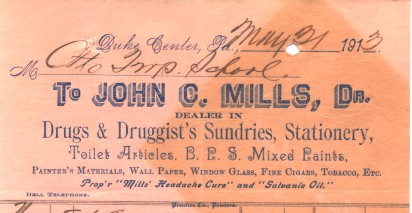 Duke Center, Pa., May 31 1913
M Otto Twp. School.
To JOHN C. MILLS, Dr.
DEALER IN
Drugs & Druggist's Sundries, Stationery,
Toilet Articles, B. P. S. Mixed Paints,
PAINTER'S MATERIALS, WALL PAPER, WINDOW GLASS, FINE CIGARS, TOBACCO, ETC.
Prop'r "Mills' Headache Cure" and "Galvanic Oil."
BELL TELEPHONE.
Co., Printers.